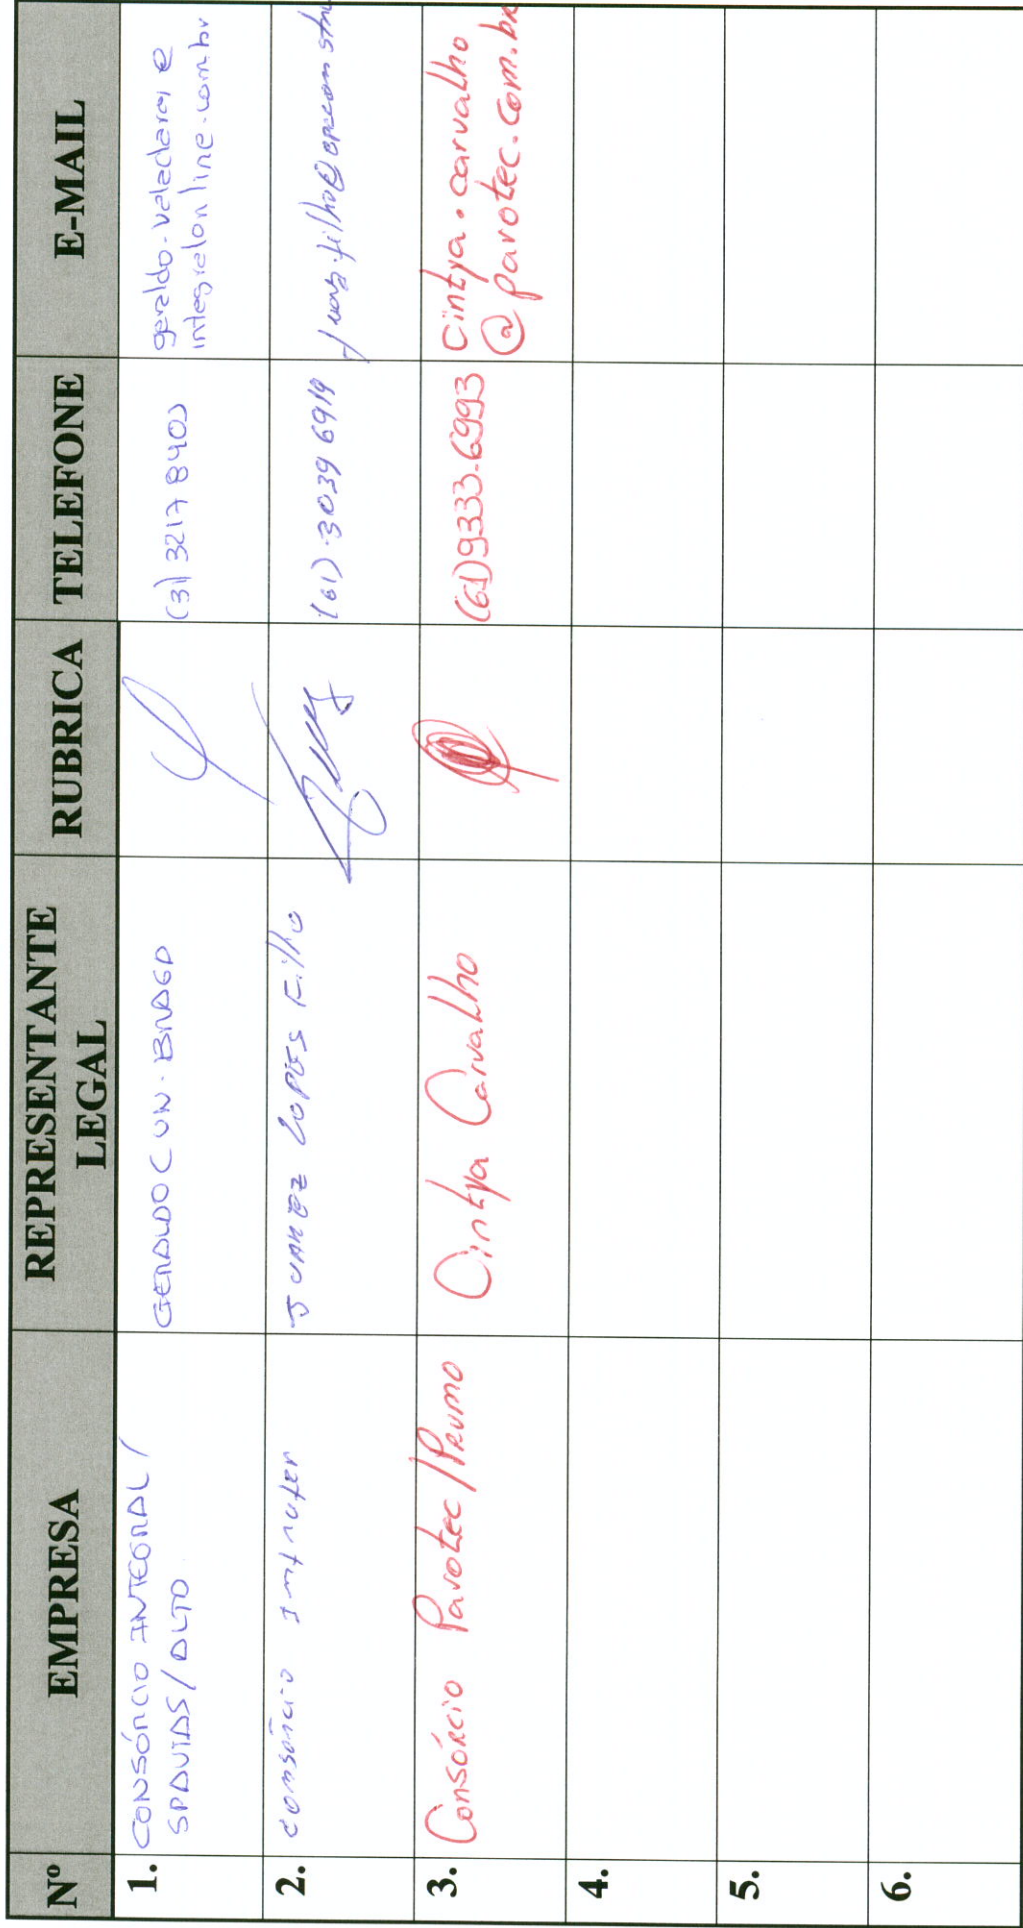 Nº EMPRESA REPRESENTANTE LEGAL RUBRICA TELEFONE E-MAIL
1. CONSÓRCIO INTEGRAL / GERALDO C VN. BRAGA (31) 3217 8403 geraldo.valadares @
SPAVIAS / ALTO integralonline.com.br
2. consórcio Infrater JUAREZ LOPES Filho (61) 3039 6919
3. CONSÓRCIO Pavotec / PRUMO Cintya Carvalho (61) 9333-6993 Cintya.carvalho
@pavotec.com.br
4.
5.
6.